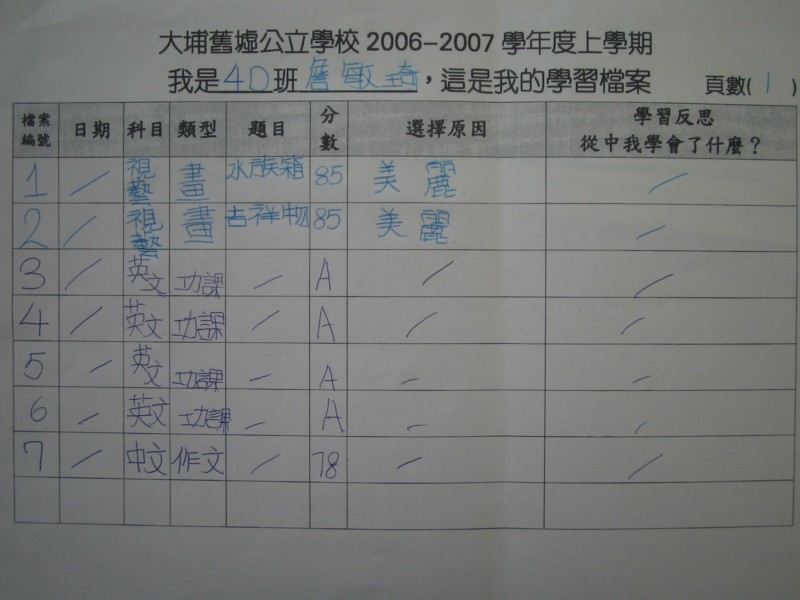 大埔舊墟公立學校 2006-2007 學年度上學期
我是4D班詹敏琦，這是我的學習檔案 頁數(1)
檔案編號 日期 科目 類型 題目 分數 選擇原因 學習反思 從中我學會了什麼？
1 / 視藝 畫 水族箱 85 美麗 /
2 / 視藝 畫 吉祥物 85 美麗 /
3 / 英文 功課 / A / /
4 / 英文 功課 / A / /
5 / 英文 功課 / A / /
6 / 英文 功課 / A / /
7 / 中文 作文 / 78 / /